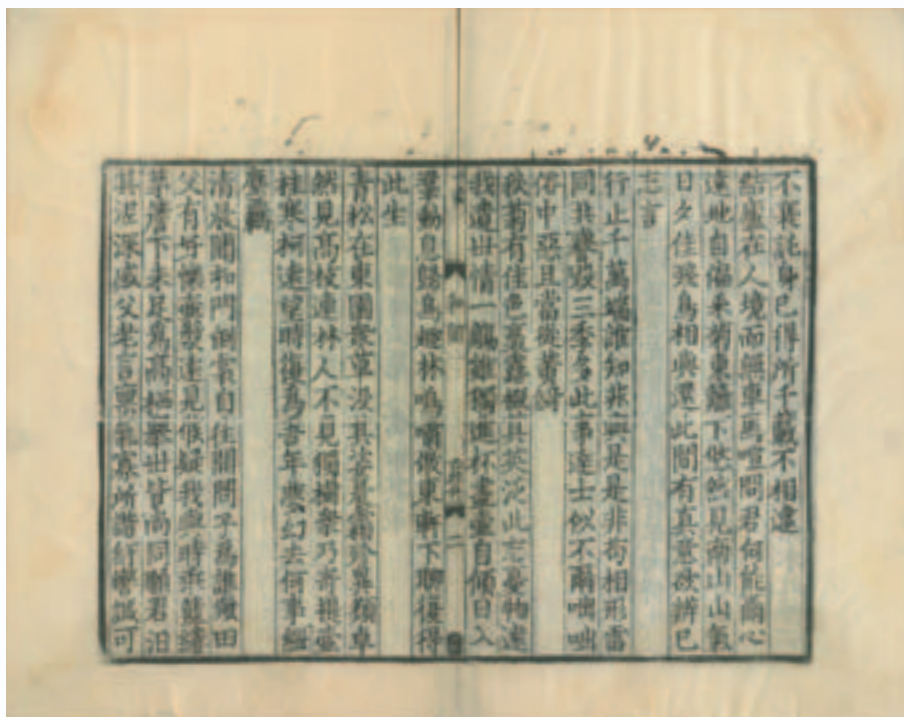 不衰託身已得所千載不相違
結廬在人境而無車馬喧問君何能爾心
遠地自偏采菊東籬下悠然見南山山氣
日夕佳飛鳥相與還此間有真意欲辨已
忘言
行止千萬端誰知非與是是非苟相形雷
同共譽毀三季多此事達士似不爾咄咄
俗中惡且當從黃綺
秋菊有佳色裛露掇其英汎此忘憂物遠
我遺世情一觴雖獨進杯盡壺自傾日入
羣動息歸鳥趨林鳴嘯傲東軒下聊復得
此生
二
青松在東園衆草沒其姿凝霜殄異類卓
然見高枝連林人不見獨樹衆乃奇提壺
挂寒柯遠望時復爲吾年夢幻去何事紲
塵羈
清晨聞扣門倒裳自往開問子爲誰歟田
父有好懷壺漿遠見候疑我與時乖藍縷
茅簷下未足爲高栖舉世皆尚同願君汩
其泥深感父老言稟氣寡所諧紆轡誠可